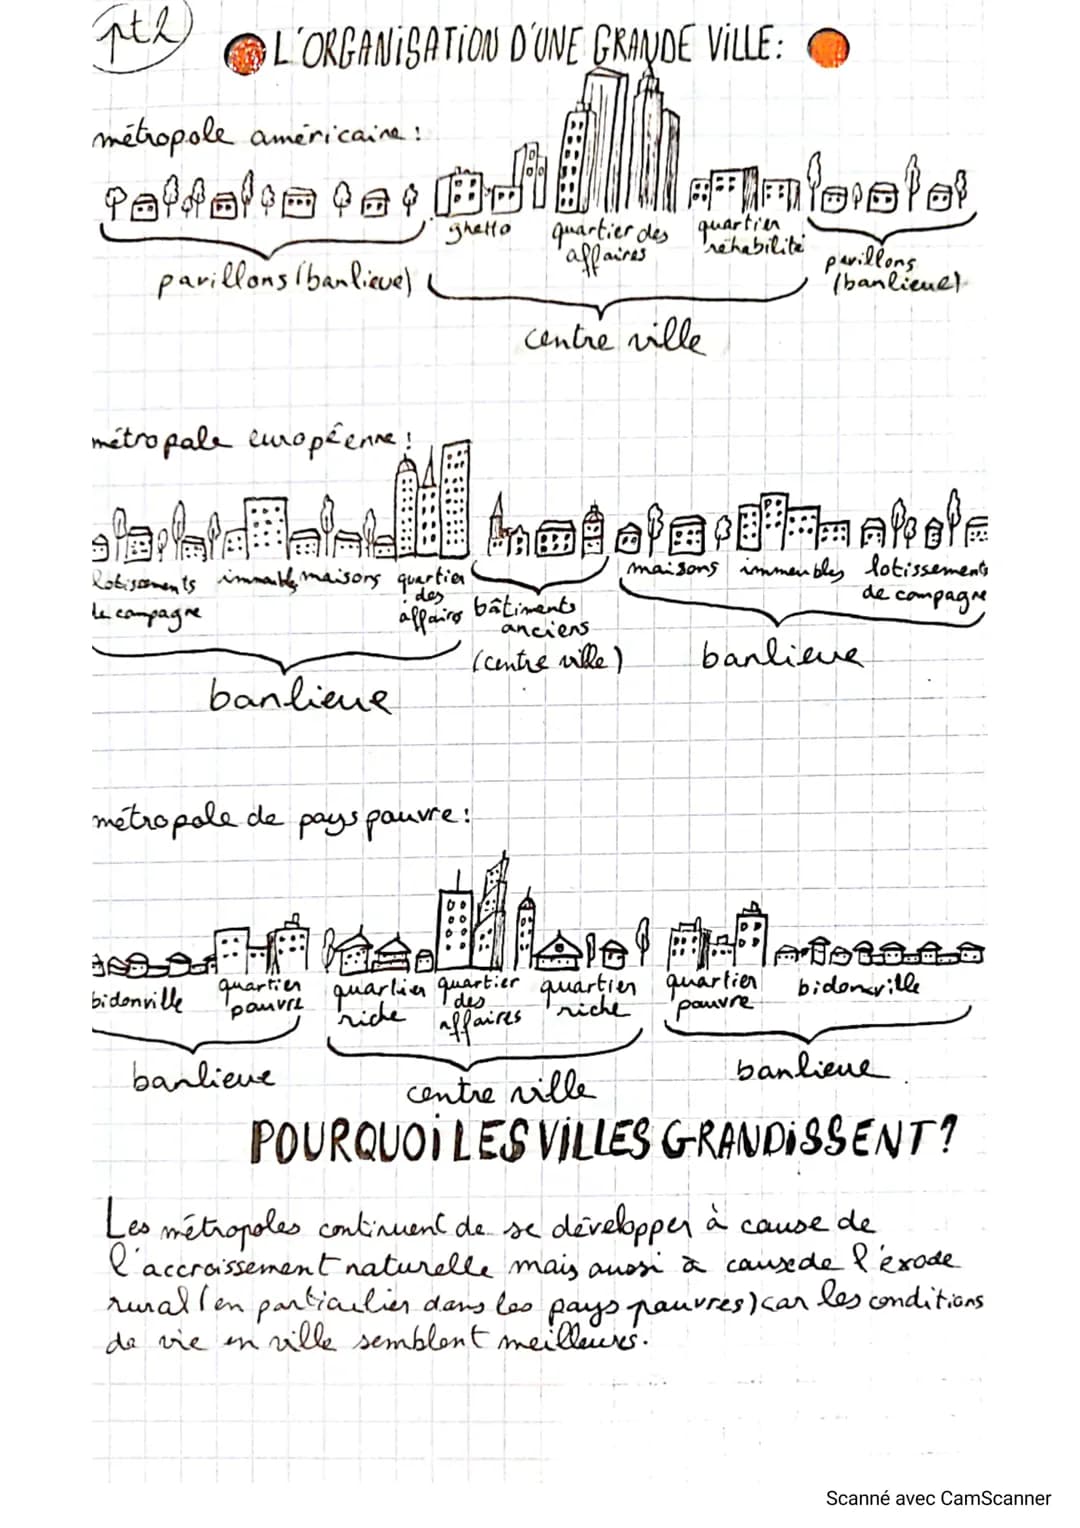 pt2
L'ORGANISATION D'UNE GRANDE VILLE:
métropole américaine:
ghetto
quartier des
affaires
quartier
réhabilité
pavillons (banlieue)
pavillons
(banlieue)
centre ville
métropale européenne:
lotissements
de campagne
immeubles
maisons
quartier
des
affaires
bâtiments
anciens
(centre ville)
maisons
immeubles
lotissements
de campagne
banlieue
banlieue
métropole de pays pauvre:
bidonville
quartier
pauvre
quartier
riche
quartier
des
affaires
quartier
riche
quartier
pauvre
bidonville
banlieue
centre ville
banlieue
POURQUOI LES VILLES GRANDISSENT?
Les métropoles continuent de se développer à cause de
l'accroissement naturelle mais aussi à cause de l'éxode
rural (en particulier dans les pays pauvres) car les conditions
de vie en ville semblent meilleures.
Scanné avec CamScanner